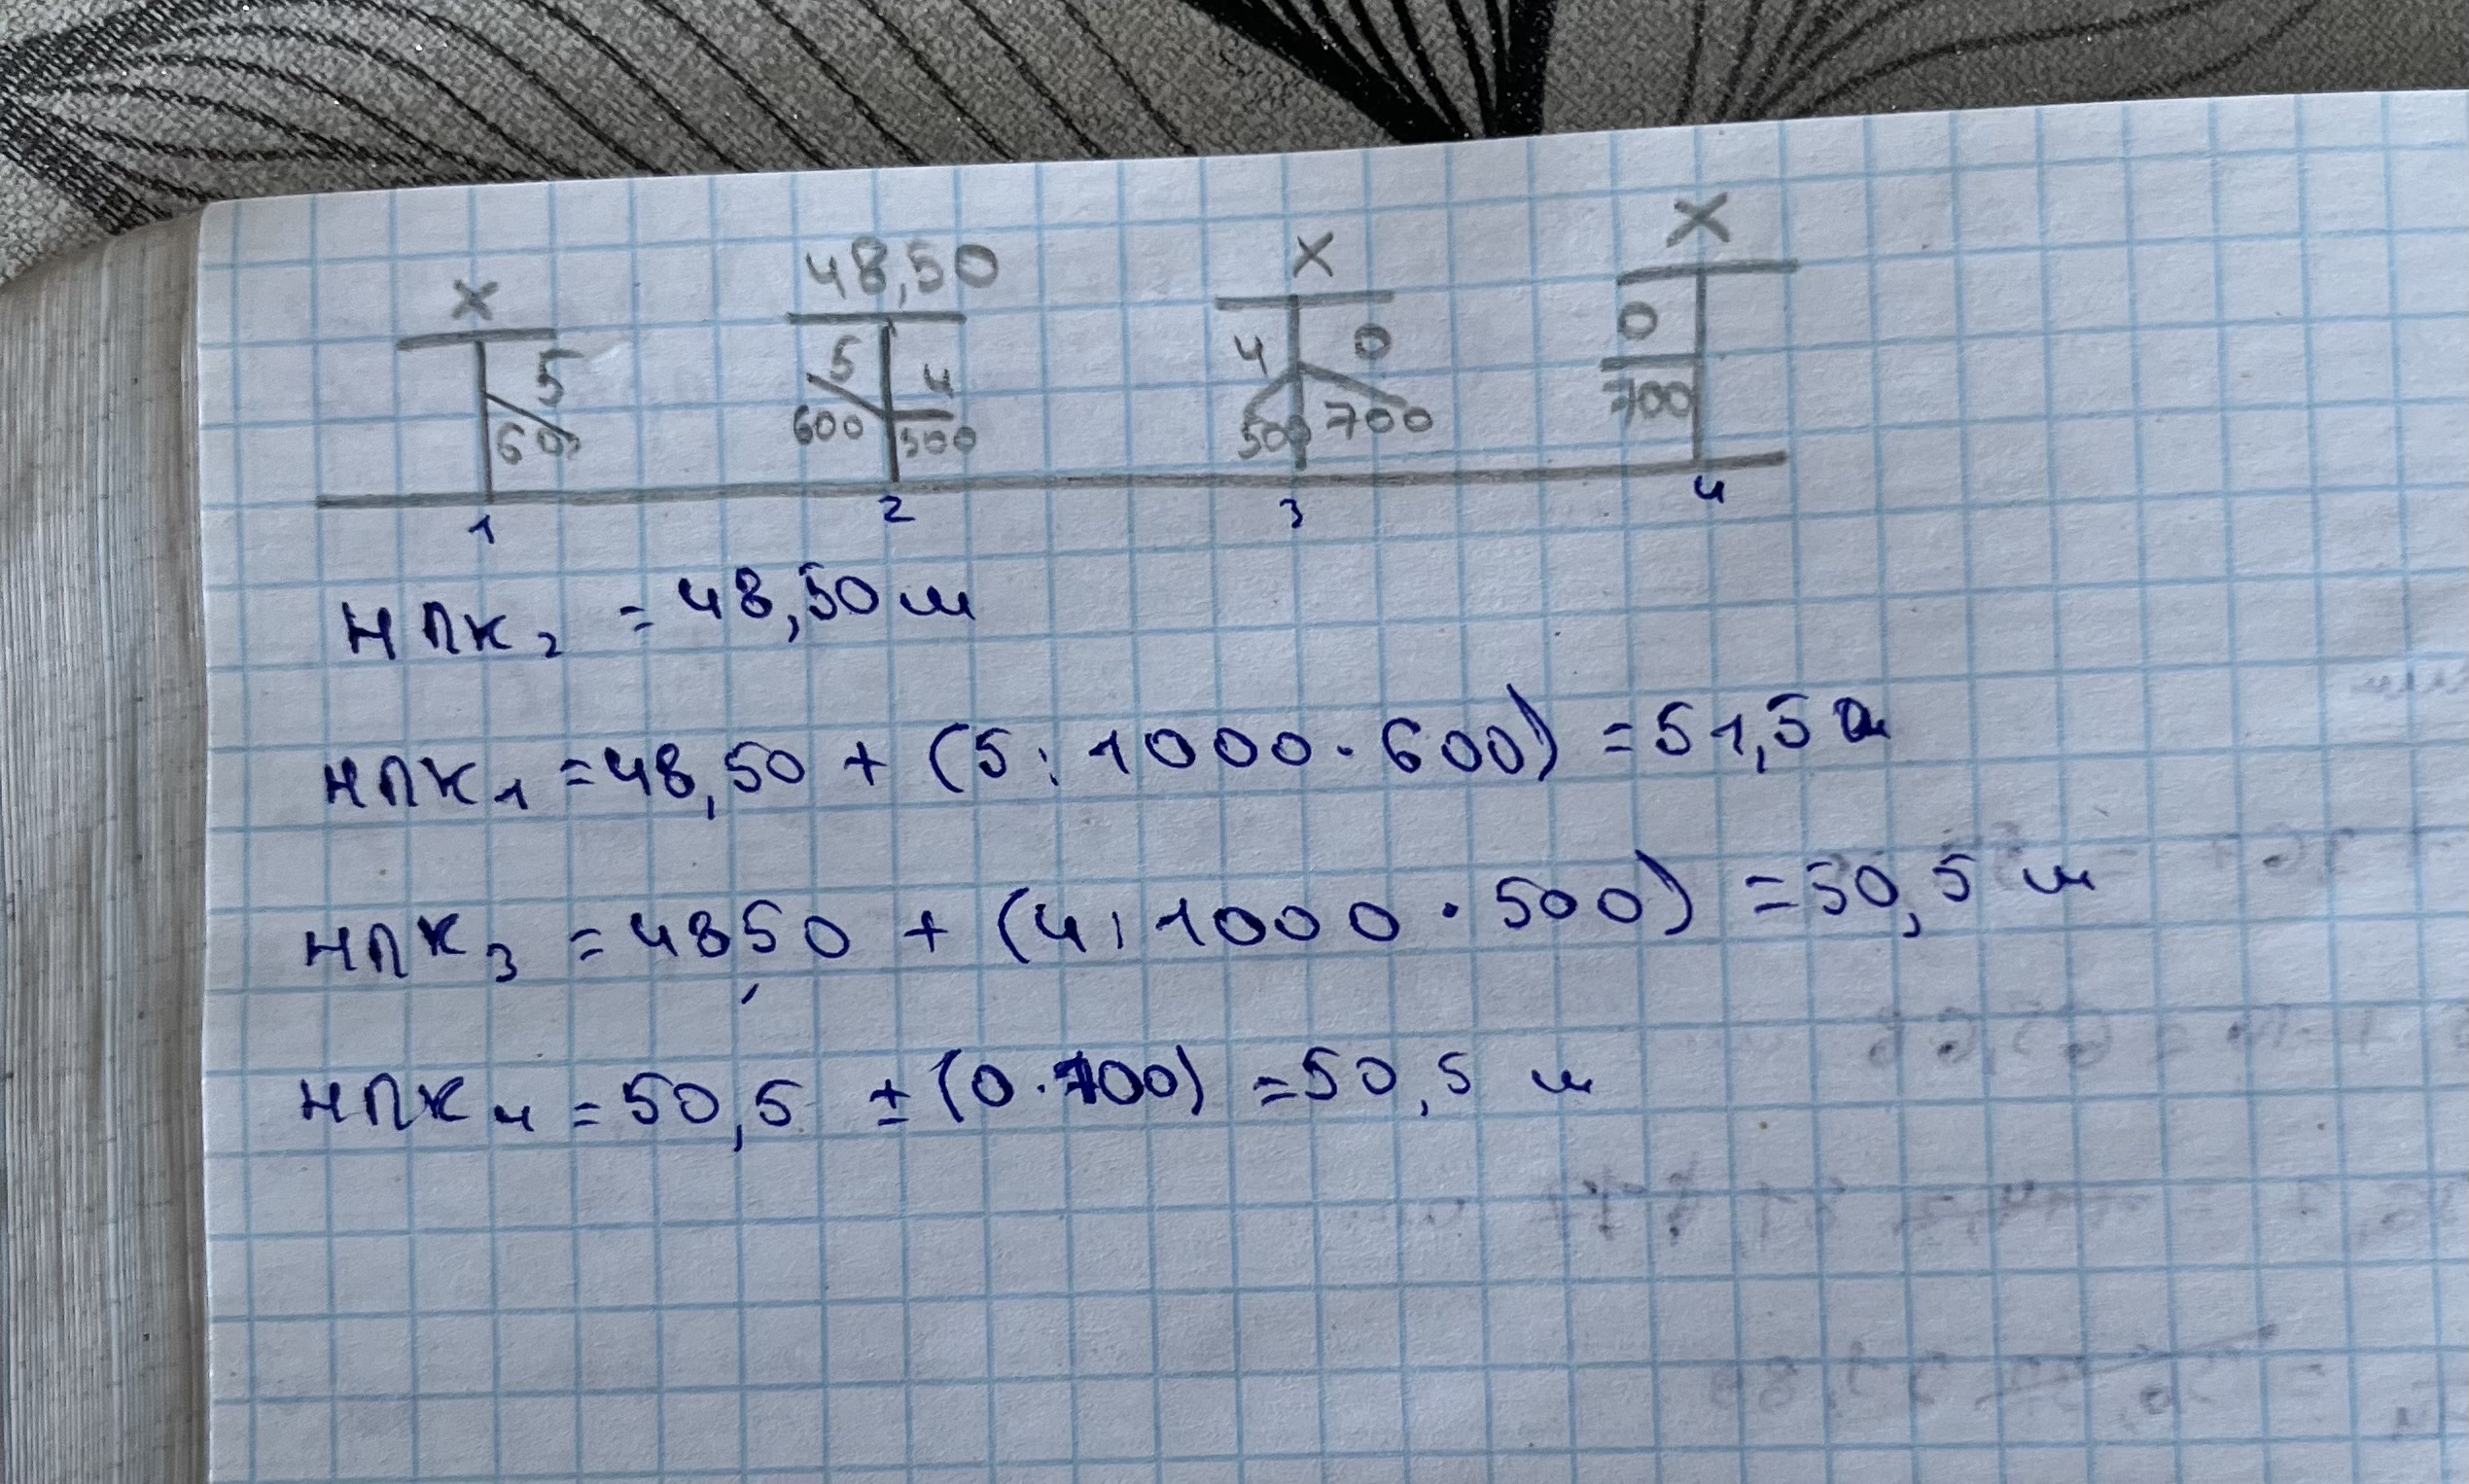 х 48,50 х х
5 5 4 4 0 0
60 600 500 500 700 700
1 2 3 4
НПК₂ = 48,50 м
НПК₁ = 48,50 + (5 : 1000 · 600) = 51,5 м
НПК₃ = 48,50 + (4 : 1000 · 500) = 50,5 м
НПК₄ = 50,5 ± (0 · 700) = 50,5 м